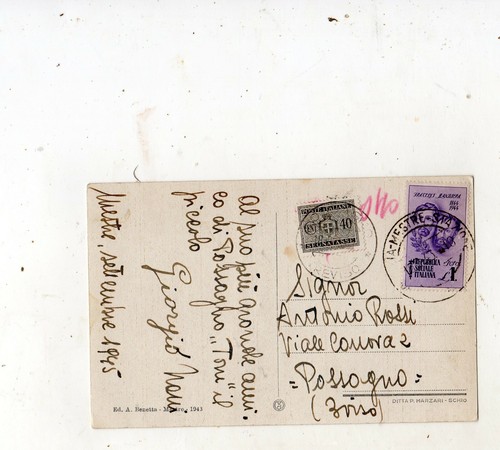 Al suo più grande ami-
co di Possagno "Toni" il
piccolo
Giorgio
Mestre, settembre 1945
Ed. A. Benetta - Mestre, 1943
POSTE ITALIANE
CENT 40
SEGNATASSE
FRATELLI BANDIERA
1844
1944
REPUBBLICA
SOCIALE
ITALIANA
L 1
MESTRE
Signor
Antonio Rossi
Viale Canova 2
=Possagno=
(Treviso)
DITTA P. MARZARI - SCHIO